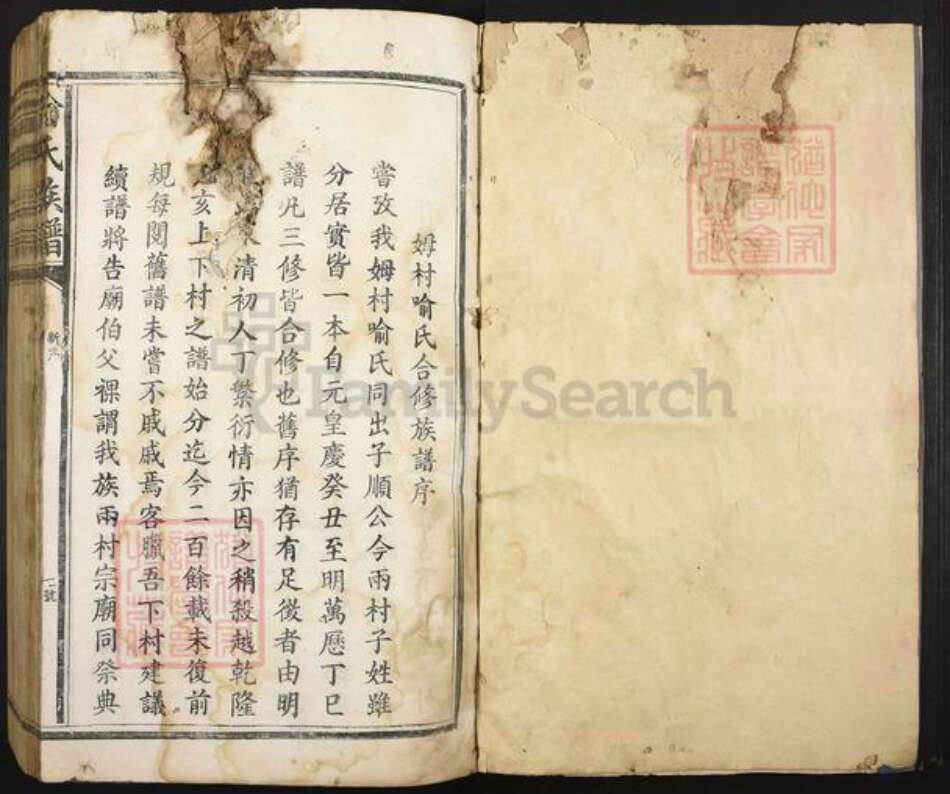 姆村喻氏合修族譜序
嘗攷我姆村喻氏同出子順公今兩村子姓雖
分居實皆一本自元皇慶癸丑至明萬厯丁巳
譜凡三修皆合修也舊序猶存有足徵者由明
清初人丁繁衍情亦因之稍殺越乾隆
亥上下村之譜始分迄今二百餘載未復前
規每閱舊譜未嘗不戚戚焉客臘吾下村建議
續譜將告廟伯父裸謂我族兩村宗廟同祭典
喻氏族譜
新序
一號
FamilySearch